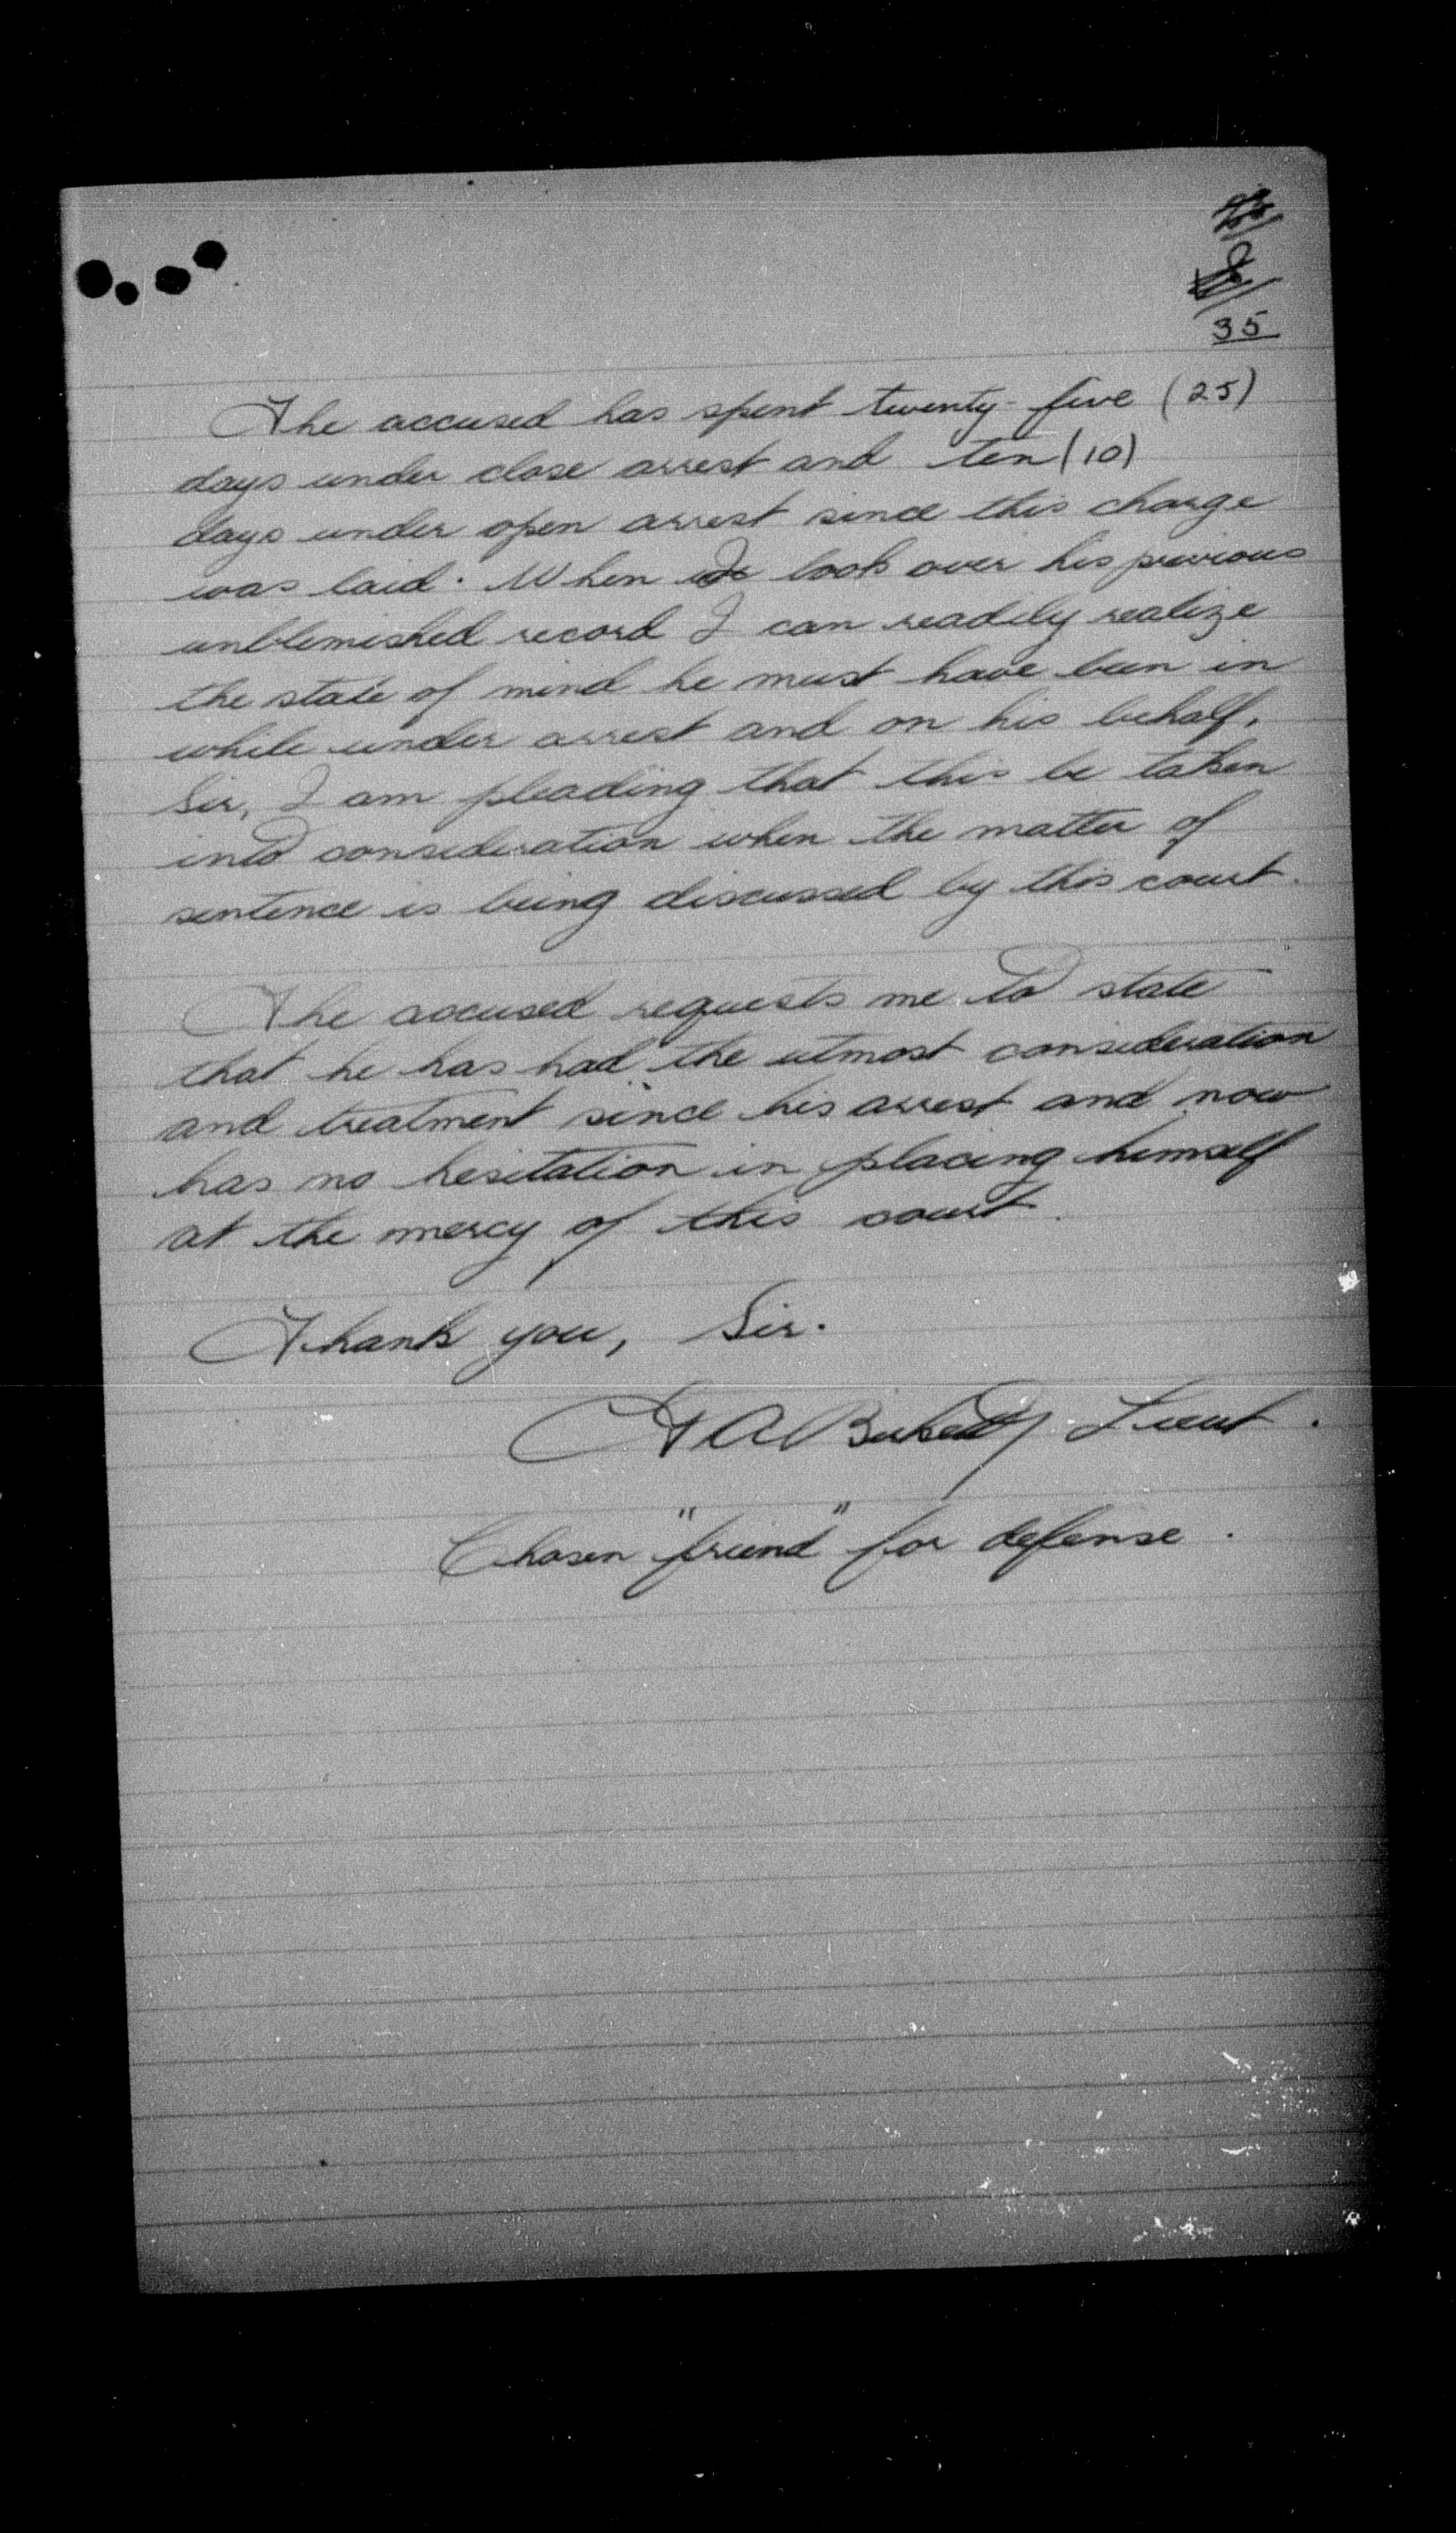 35
The accused has spent twenty-five (25)
days under close arrest and ten (10)
days under open arrest since this charge
was laid. When I look over his previous
unblemished record I can readily realize
the state of mind he must have been in
while under arrest and on his behalf,
Sir, I am pleading that this be taken
into consideration when the matter of
sentence is being discussed by this court.
The accused requests me to state
that he has had the utmost consideration
and treatment since his arrest and now
has no hesitation in placing himself
at the mercy of this court.
Thank you, Sir.
Lieut.
Chosen "friend" for defense.